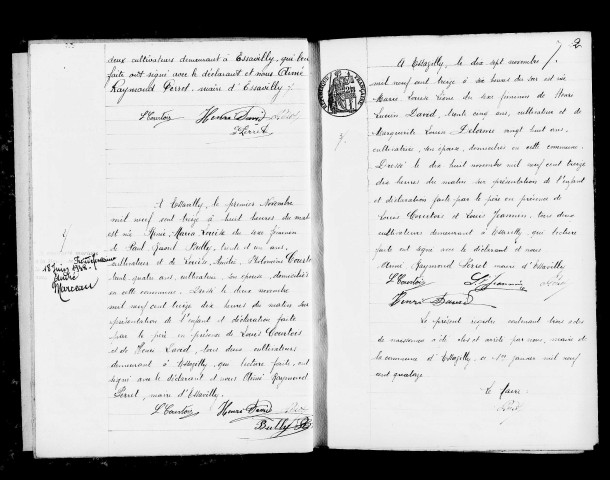 deux cultivateurs demeurant à Essavilly, qui lecture
faite ont signé avec le déclarant et nous Aimé
Raymond Perret, maire d'Essavilly
L. Courtois Henri David
Perret
A Essavilly, le premier Novembre
mil neuf cent treize à huit heures du matin
est née Marie du sexe féminin
de Paul
cultivateur et de Louise
quatre ans, cultivateur, son épouse, domiciliés
en cette commune. Dressé le deux novembre
mil neuf cent treize dix heures du matin sur
présentation de l'enfant et déclaration faite
par le père en présence de Louis Courtois
et de Henri David, tous deux cultivateurs
demeurant à Essavilly, qui lecture faite, ont
signé avec le déclarant et nous Aimé Raymond
Perret, maire d'Essavilly.
L. Courtois Henri David
18 Juin
Marceau
2
A Essavilly, le dix sept novembre
mil neuf cent treize à six heures du soir est née
Marie Louise du sexe féminin de Henri
Lucien David, trente cinq ans, cultivateur et de
Marguerite Louise Delorme vingt huit ans,
cultivatrice, son épouse, domiciliés en cette commune.
Dressé le dix huit novembre mil neuf cent treize
dix heures du matin sur présentation de l'enfant
et déclaration faite par le père en présence de
Louis Courtois et Louis Jeannin, tous deux
cultivateurs demeurant à Essavilly, qui lecture
faite ont signé avec le déclarant et nous
Aimé Raymond Perret maire d'Essavilly
L. Courtois L. Jeannin
Henri David
Le présent registre contenant trois actes
de naissance a été clos et arrêté par nous, maire de
la commune d'Essavilly, ce 1er janvier mil neuf
cent quatorze
Le Maire